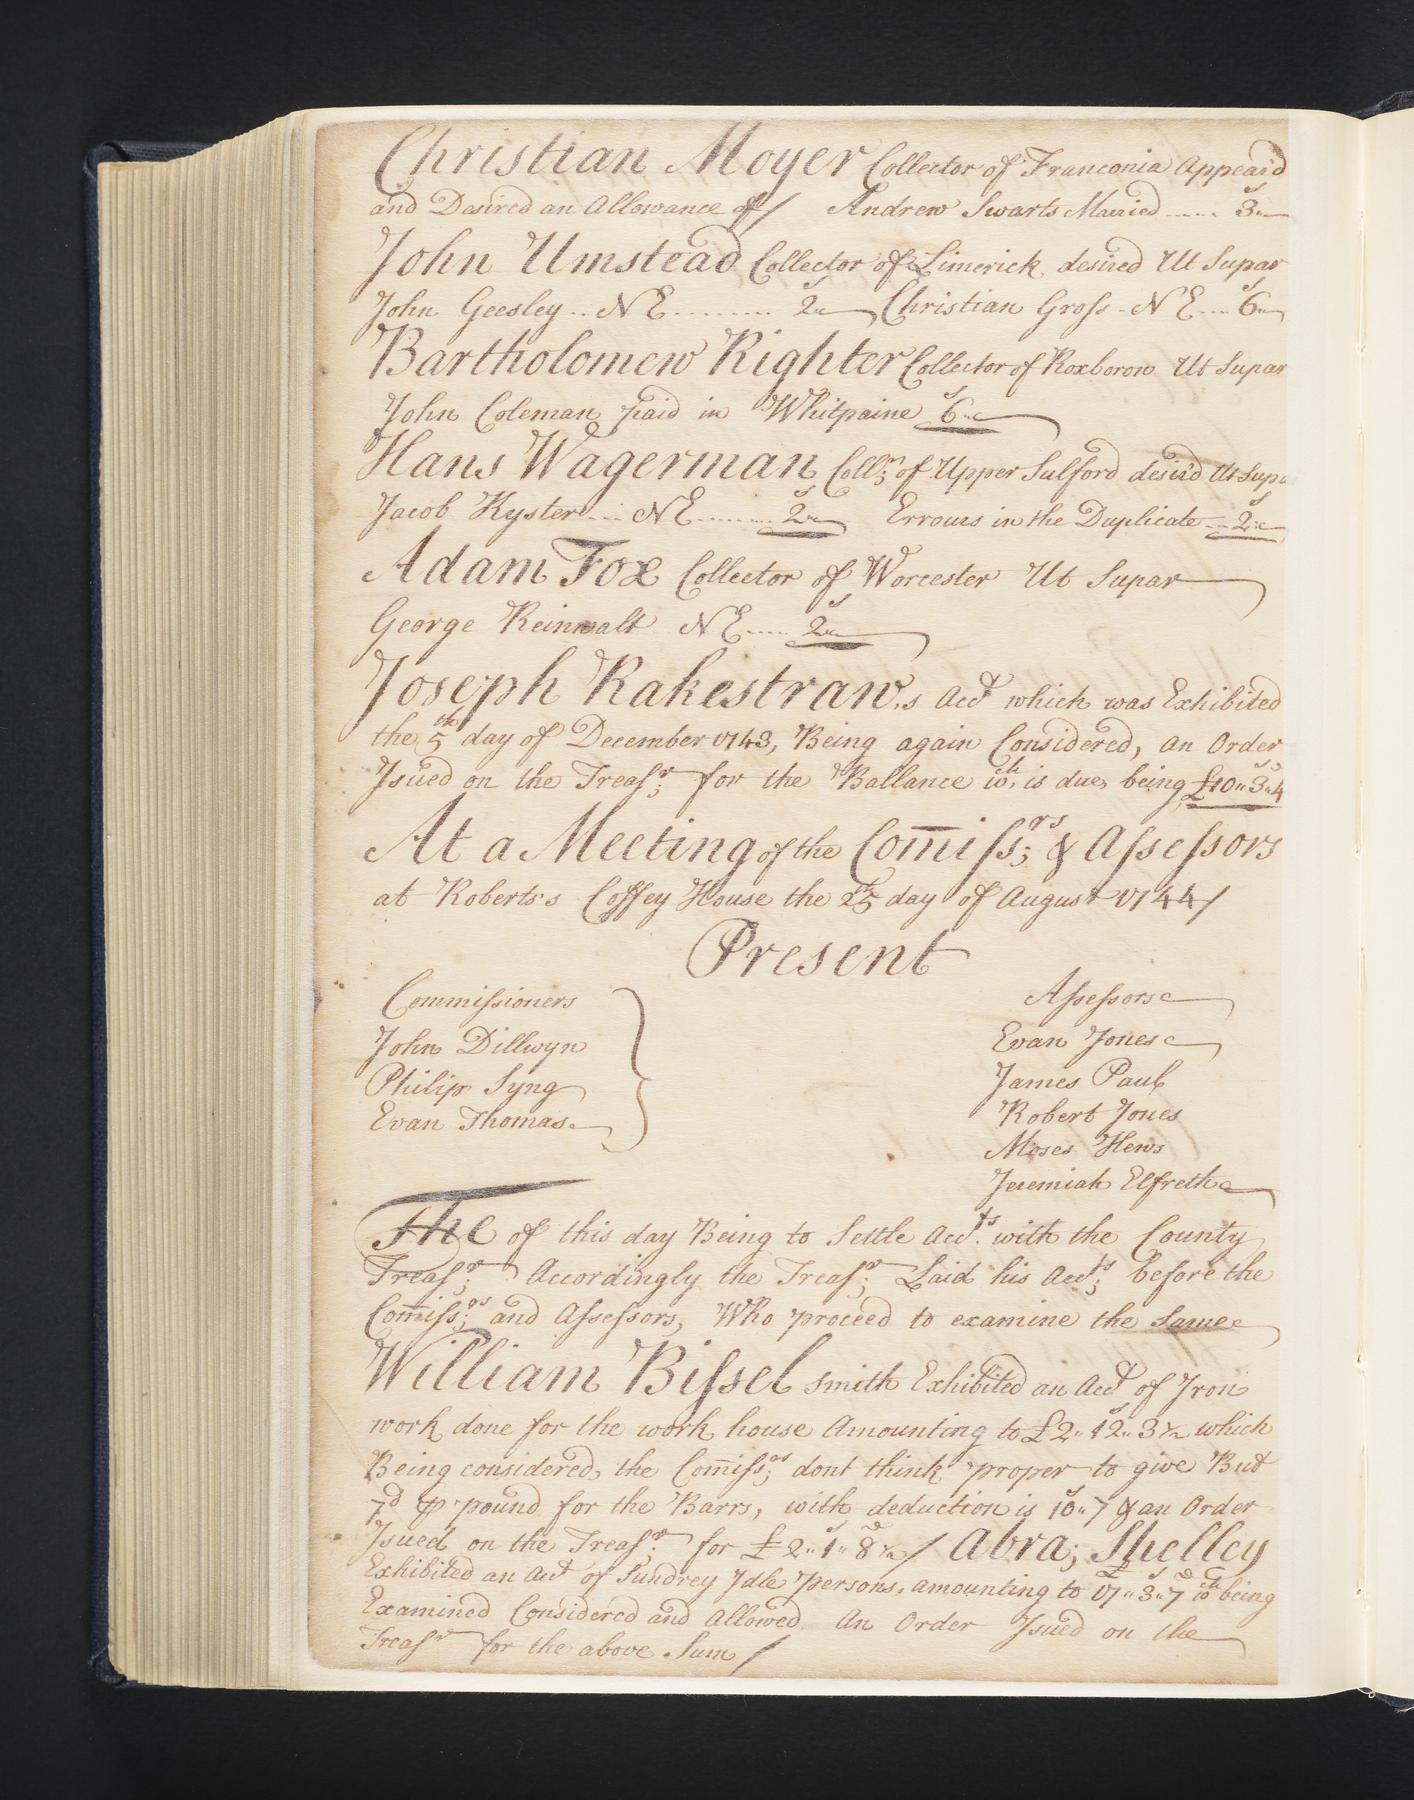 Christian Moyer Collector of Franconia Appear'd
and Desired an Allowance of / Andrew Swarts Married ..... 3s
John Umstead Collector of Limerick desired Ut Supar
John Geesley .. N E ......... 2s Christian Gross - N E .... 6s
Bartholomew Righter Collector of Roxborow Ut Supar
John Coleman paid in Whitpaine 6s
Hans Wagerman Coll;r of Upper Sulford desir'd Ut Supa
Jacob Kyster .... N E ........ 2s Errours in the Duplicate ... 2s
Adam Fox Collector of Worcester Ut Supar
George Reinwalt N E ..... 2s
Joseph Rakestraw,s Acct which was Exhibited
the 5th day of December 1743, Being again Considered, an Order
Isued on the Treasr; for the Ballance wch, is due, being £10"3"4
At a Meeting of the Comissrs; & Assessors
at Roberts's Coffey House the 25th day of August 1744/
Present
Commissioners
John Dillwyn
Philip Syng
Evan Thomas
Assessors
Evan Jones
James Paul
Robert Jones
Moses Hews
Jeremiah Elfreth
The of this day Being to Settle Accts. with the County
Treasr; Accordingly the Treasr; Laid his Accts; before the
Comissrs; and Assessors, Who proceed to examine the Same
William Bissel smith Exhibited an Acct of Iron
work done for the work house Amounting to £2"12"3½ which
Being considered, the Comissrs; dont think proper to give But
7d ⅌ pound for the Barrs, with deduction is 10"7 & an Order
Isued on the Treasr; for £2"1"8½ / Abra; Shelley
Exhibited an Acct of Sundrey Idle persons, amounting to £17"3"7 wch being
Examined Considered and Allowed An Order Isued on the
Treasr for the above Sum /